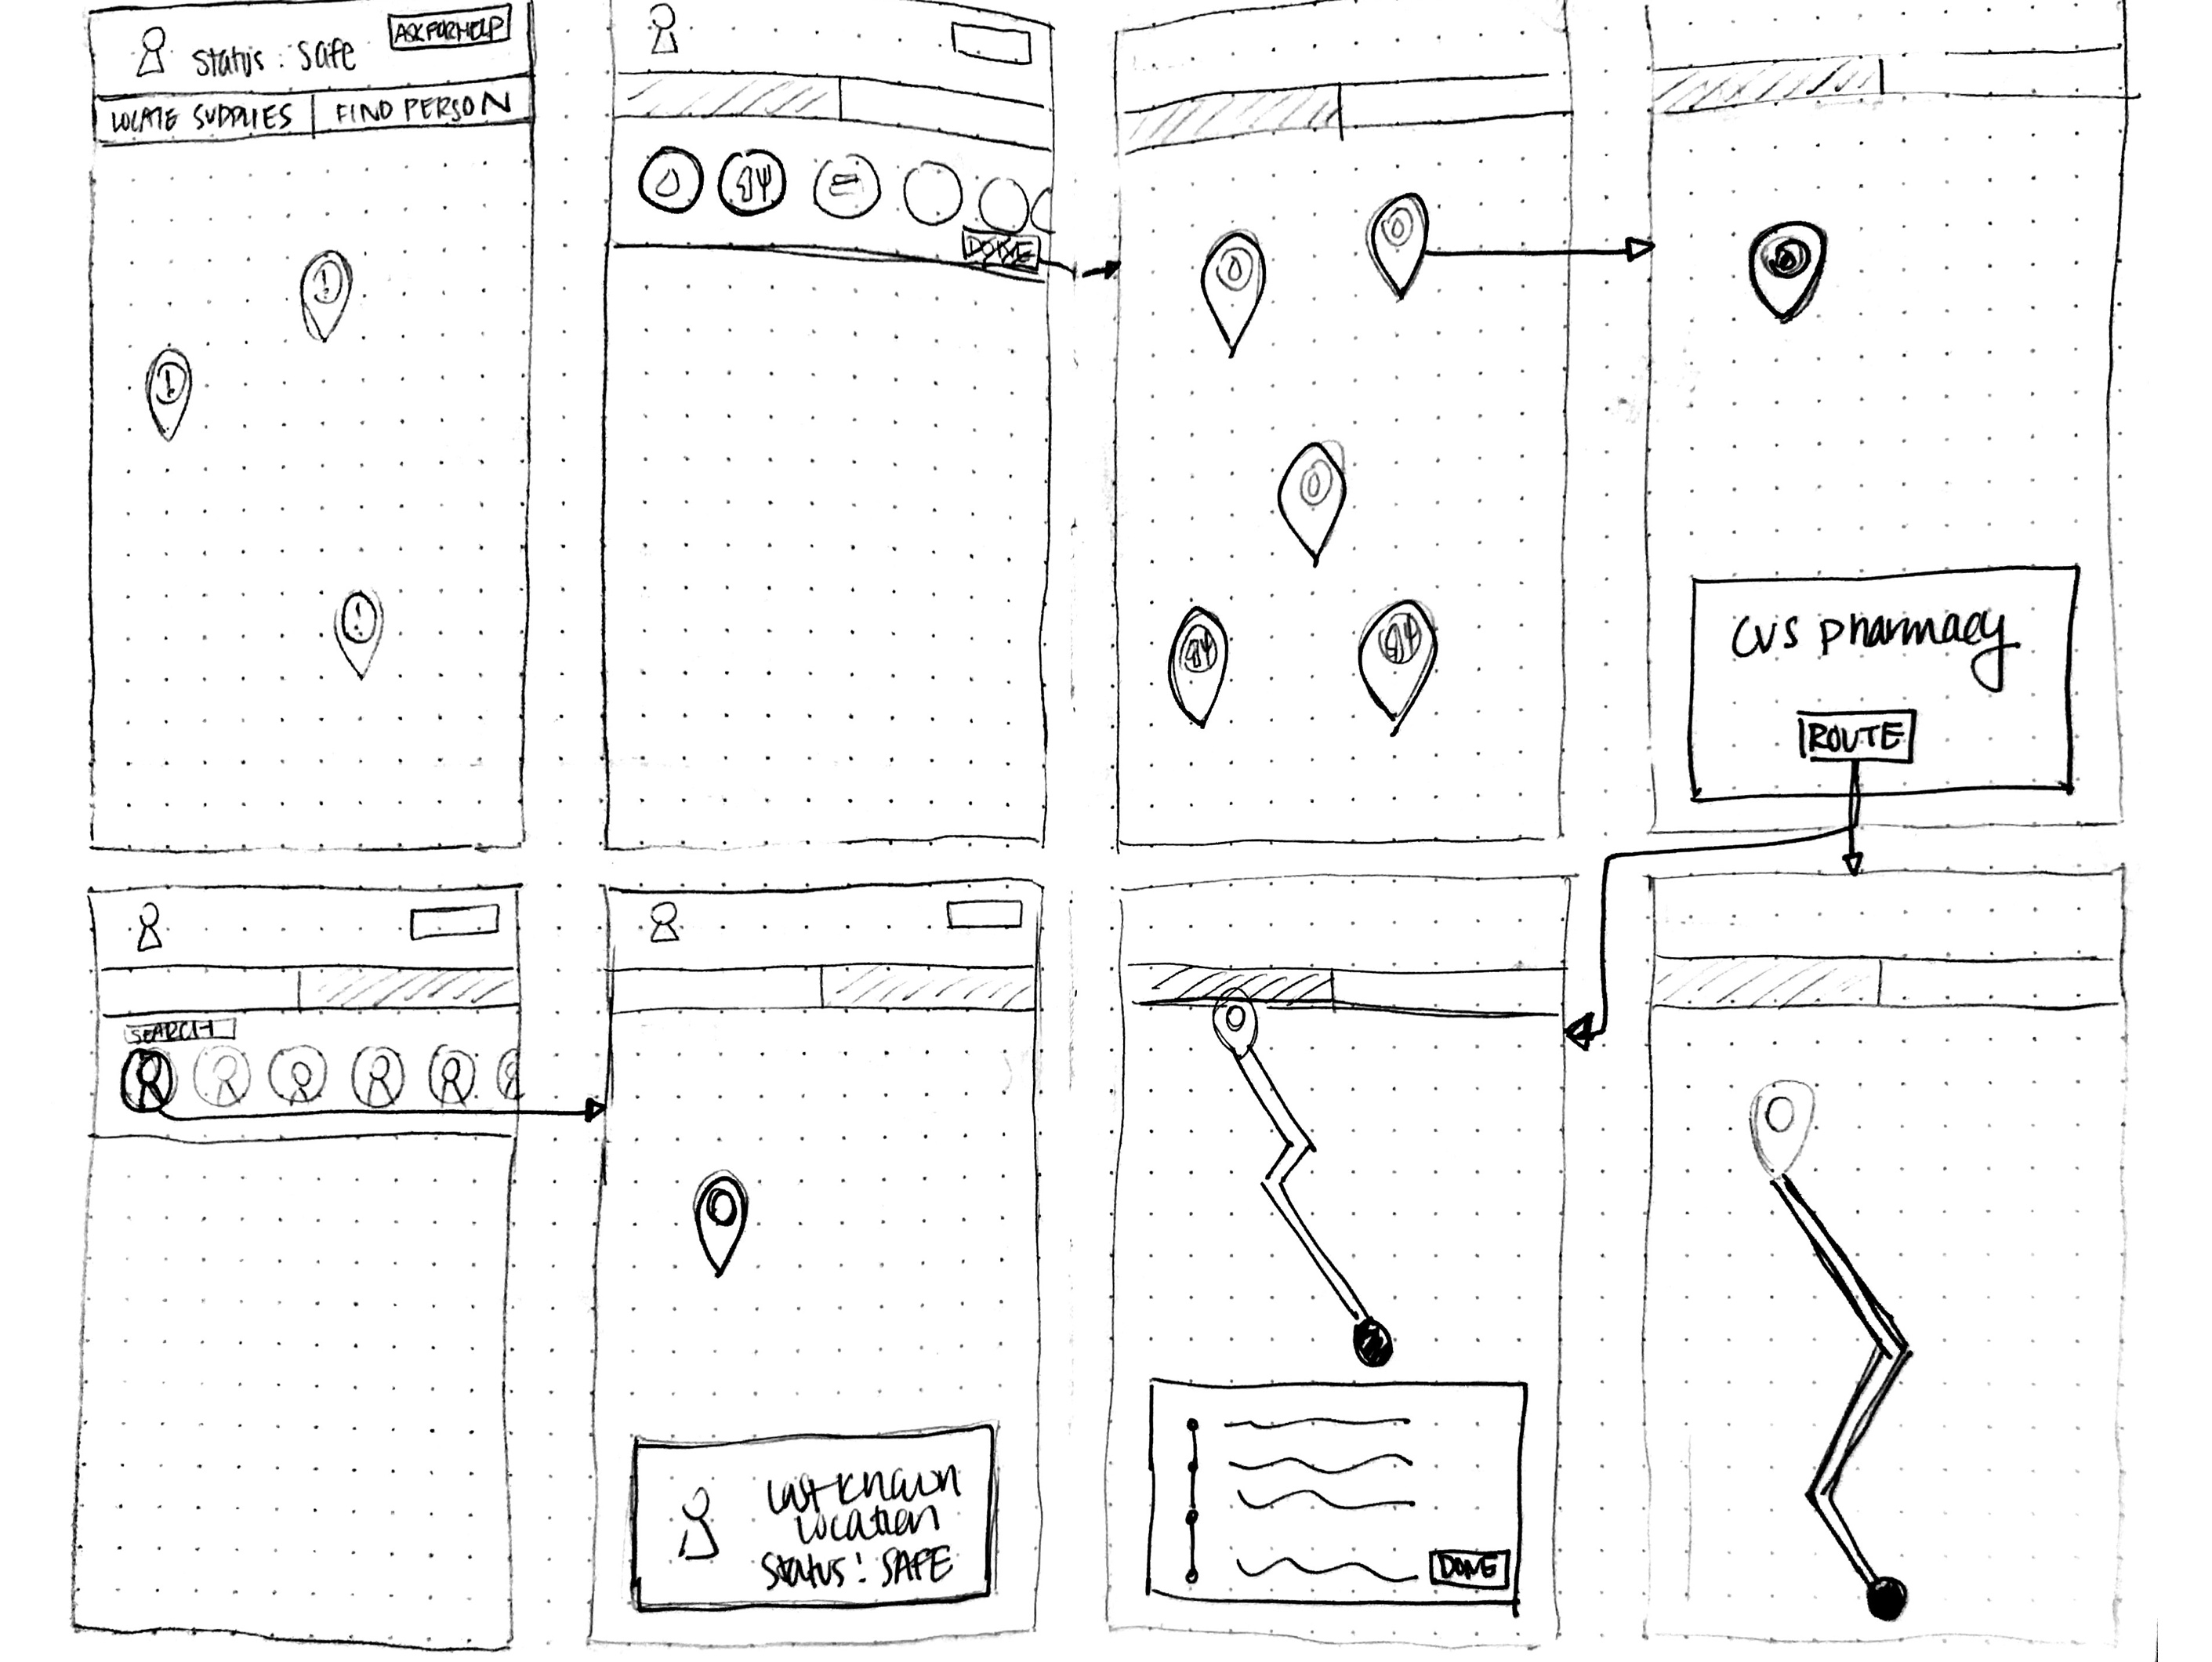 Status: Safe
ASK FOR HELP
LOCATE SUPPLIES
FIND PERSON
DONE
CVS pharmacy
ROUTE
SEARCH
last known
location
Status: SAFE
DONE